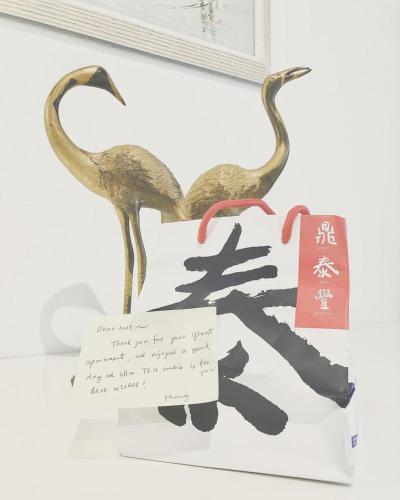 鼎
泰
豐
泰
Dear host~
Thank you for your great
apartment, we enjoyed a good
day at Ulm. This cookie is for
you
Best wishes!